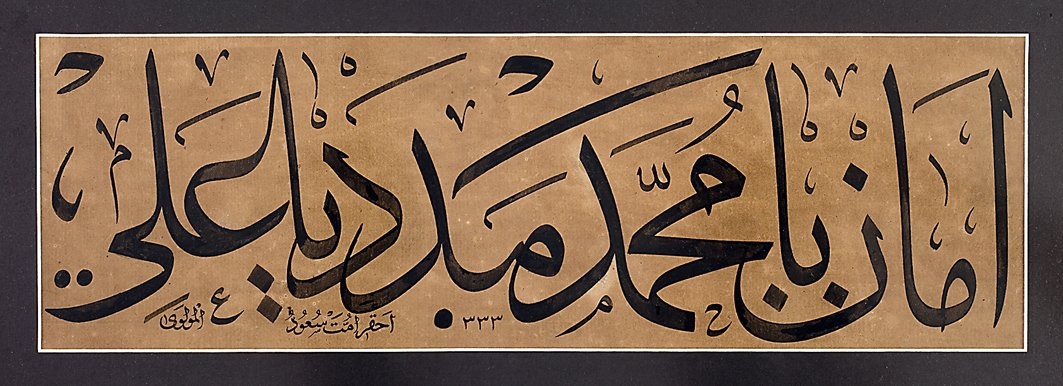 امان يا محمّد مدد يا علي
٣٣٣ احقر امت سعود المولوى